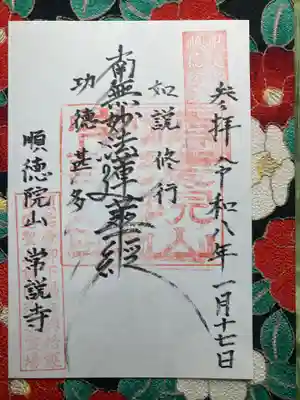 参拝 令和八年 一月十七日
如説修行
南無妙法蓮華経
功徳甚多
順徳院山 常説寺